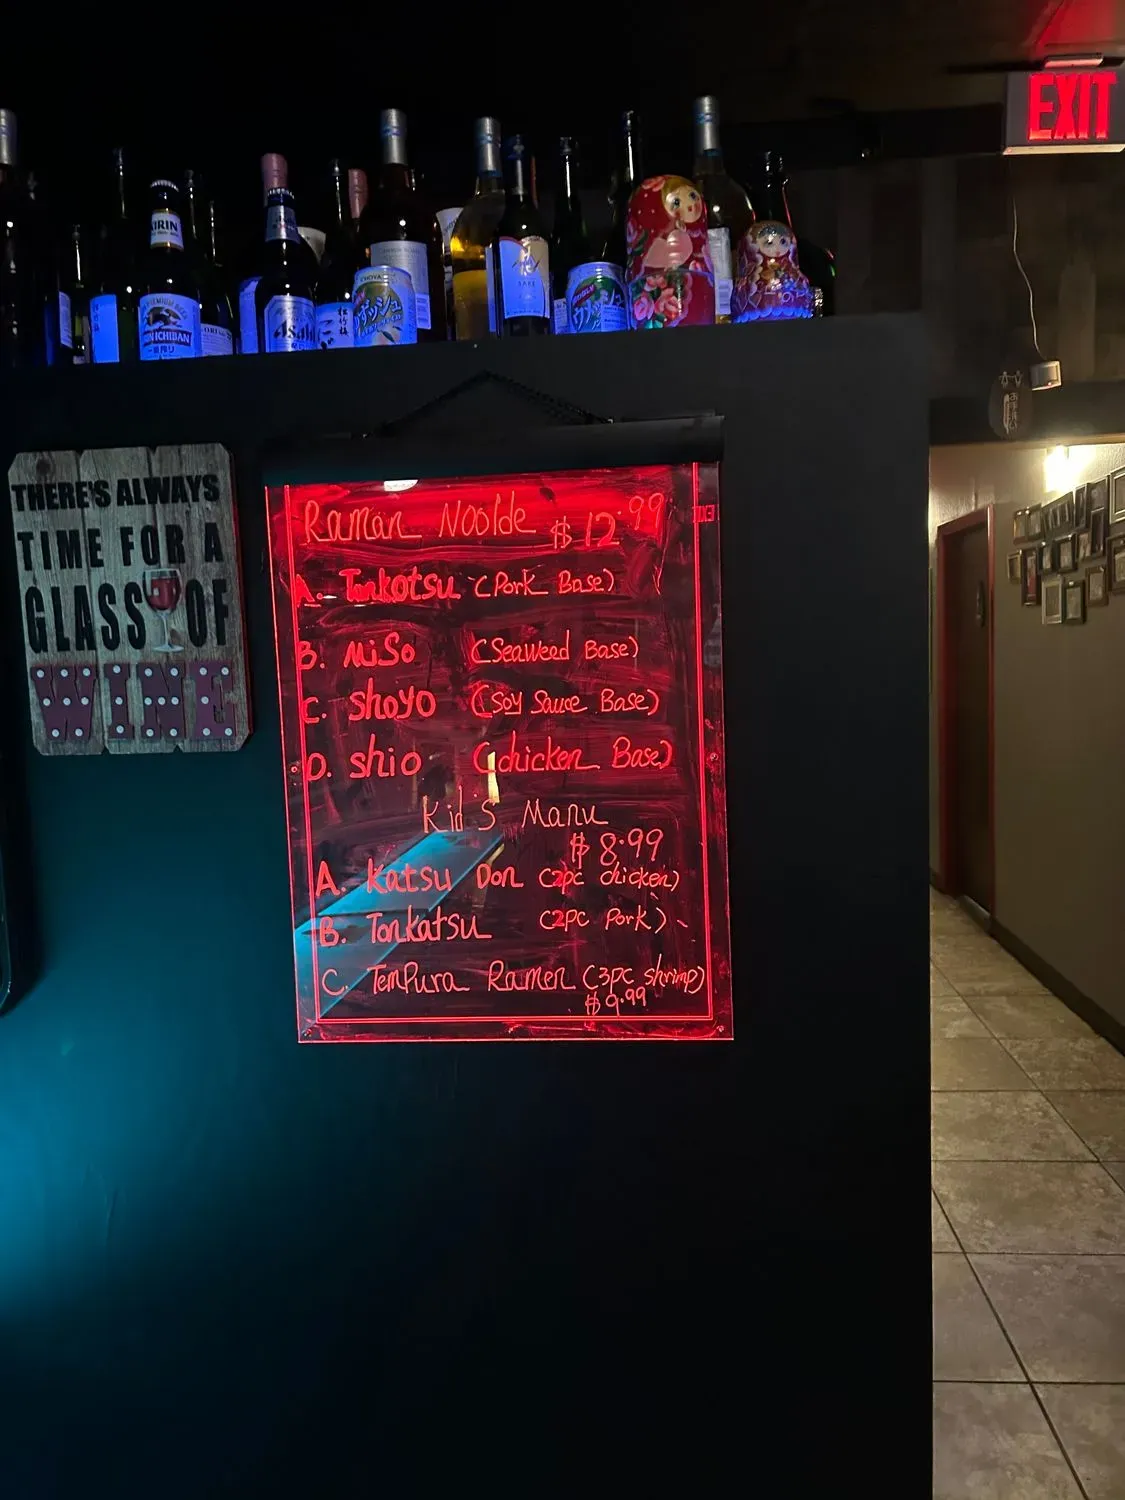 EXIT
KIRIN
ICHIBAN
Asahi
CHOYA
SAKE
THERE'S ALWAYS
TIME FOR A
GLASS OF
WINE
Raman Noolde $12.99
A. Tonkotsu (Pork Base)
B. Miso (Seaweed Base)
C. Shoyo (Soy Sauce Base)
D. Shio (chicken Base)
Kid's Manu
$8.99
A. Katsu Don (2pc chicken)
B. Tonkatsu (2pc Pork)
C. Tempura Ramen (3pc shrimp)
$9.99